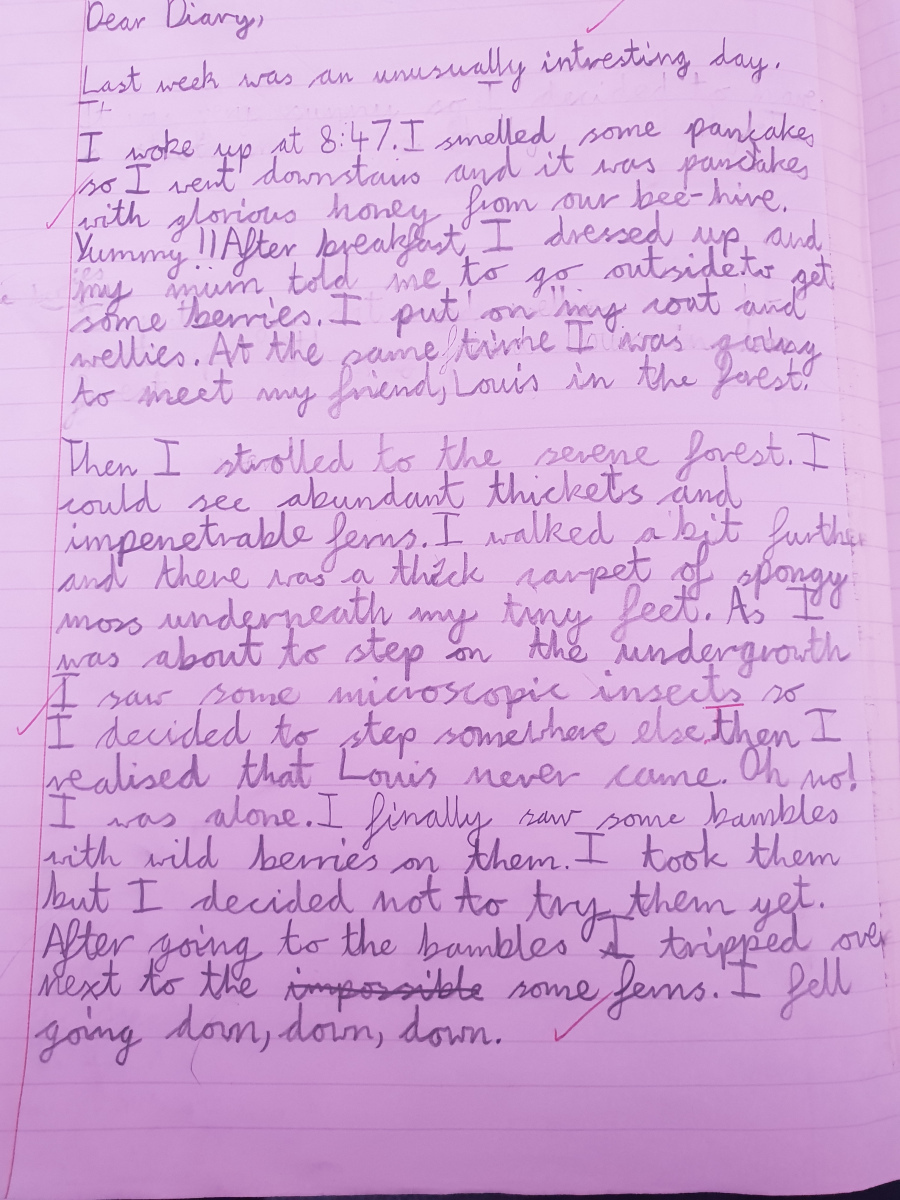 Dear Diary,
Last week was an unusually intresting day.
It
I woke up at 8:47. I smelled some pancakes
so I went downstairs and it was pancakes
with glorious honey from our bee-hive.
Yummy!! After breakfast, I dressed up and
my mum told me to go outside to get
some berries. I put on my coat and
wellies. At the same time I was going
to meet my friend, Louis in the forest.
Then I strolled to the serene forest. I
could see abundant thickets and
impenetrable ferns. I walked a bit further
and there was a thick carpet of spongy
moss underneath my tiny feet. As I
was about to step on the undergrowth
I saw some microscopic insects so
I decided to step somewhere else, then I
realised that Louis never came. Oh no!
I was alone. I finally saw some bambles
with wild berries on them. I took them
but I decided not to try them yet.
After going to the bambles I tripped over
next to the impossible some ferns. I fell
going down, down, down.